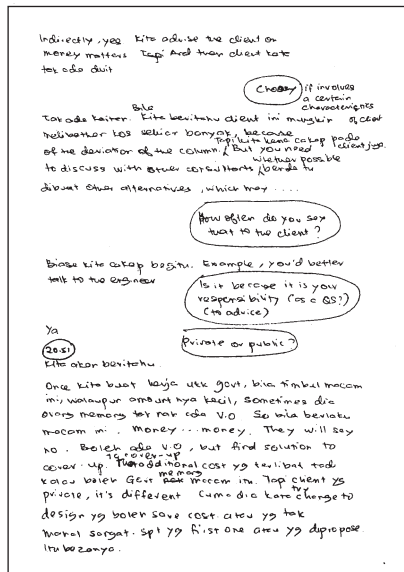 Indirectly, yes kita advise the client on
money matters Tapi And then client kata
tak ada duit
Choosy if involves
a certain
characteristics
of client
Bila
Tak ada kaitan. Kita beritahu client ini mungkin
melibatkan kos sekian banyak, because
Tapi kita kena cakap pada
client juga.
of the deviation of the column. But you need
whether possible
to discuss with other consultants, benda tu
dibuat other alternatives, which may ....
How often do you say
that to the client?
Biasa kita cakap begitu. Example, you'd better
talk to the engineer
Is it because it is your
responsibility (as a QS?)
(to advice)
Ya
20.51
Private or public?
Kita akan beritahu
Once kita buat kerja utk govt, bila timbul macam
ini, walaupun amount nya kecil, sometimes dia
orang memang tak nak ada V.O So bila berlaku
macam ni. Money... money. They will say
no. Boleh ada V.O, but find solution to
to cover-up
cover-up. The additional cost yg terlibat tad
memang
kalau boleh Govt macam itu. Tapi client yg
private, it's different Cuma dia kata try change to
design yg boleh save cost atau yg tak
mahal sangat. Spt yg first one atau yg dipropose.
Itu bezanya.